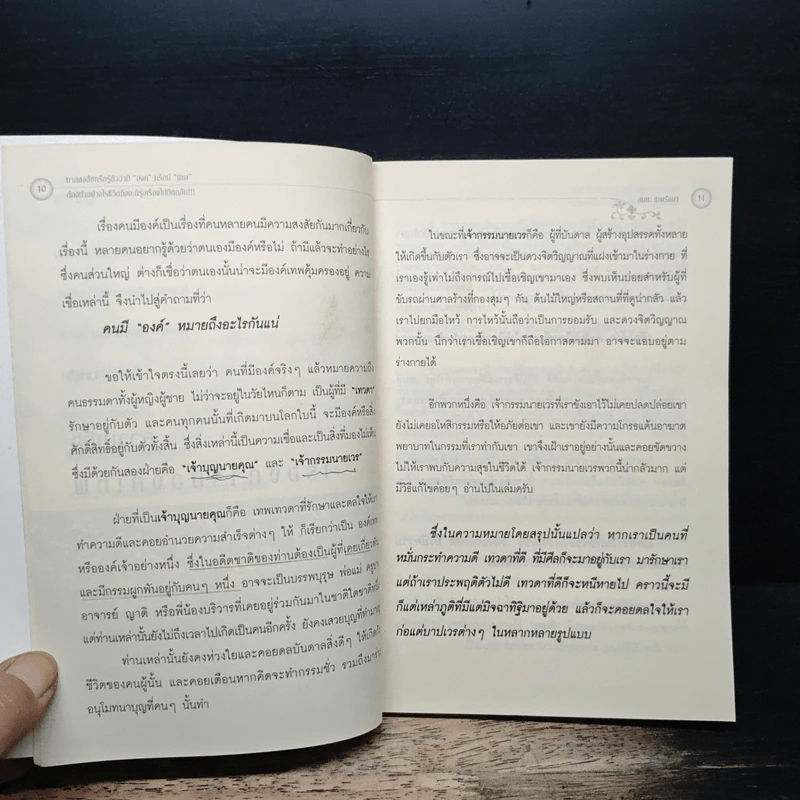 10
เรื่องคนมีองค์เป็นเรื่องที่คนหลายคนมีความสงสัยกันมากเกี่ยวกับ
เรื่องนี้ หลายคนอยากรู้ด้วยว่าตนเองมีองค์หรือไม่ ถ้ามีแล้วจะทำอย่างไร
ซึ่งคนส่วนใหญ่ ต่างก็เชื่อว่าตนเองนั้นน่าจะมีองค์เทพคุ้มครองอยู่ ความ
เชื่อเหล่านี้ จึงนำไปสู่คำถามที่ว่า
คนมี "องค์" หมายถึงอะไรกันแน่
ขอให้เข้าใจตรงนี้เลยว่า คนที่มีองค์จริงๆ แล้วหมายความถึง
คนธรรมดาทั้งผู้หญิงผู้ชาย ไม่ว่าจะอยู่ในวัยไหนก็ตาม เป็นผู้ที่มี "เทวดา"
รักษาอยู่กับตัว และคนทุกคนนั้นที่เกิดมาบนโลกใบนี้ จะมีองค์หรือสิ่ง
ศักดิ์สิทธิ์อยู่กับตัวทั้งสิ้น ซึ่งสิ่งเหล่านี้เป็นความเชื่อและเป็นสิ่งที่มองไม่เห็น
ซึ่งมีด้วยกันสองฝ่ายคือ "เจ้าบุญนายคุณ" และ "เจ้ากรรมนายเวร"
ฝ่ายที่เป็นเจ้าบุญนายคุณก็คือ เทพเทวดาที่รักษาและดลใจให้เรา
ทำความดีและคอยอำนวยความสำเร็จต่างๆ ให้ ก็เรียกว่าเป็น องค์เทพ
หรือองค์เจ้าอย่างหนึ่ง ซึ่งในอดีตชาติของท่านต้องเป็นผู้ที่เคยเกี่ยวพัน
และมีกรรมผูกพันอยู่กับคนๆ หนึ่ง อาจจะเป็นบรรพบุรุษ พ่อแม่ ครูบา
อาจารย์ ญาติ หรือพี่น้องบริวารที่เคยอยู่ร่วมกันมาในชาติใดชาติหนึ่ง
แต่ท่านเหล่านั้นยังไม่ถึงเวลาไปเกิดเป็นคนอีกครั้ง ยังคงเสวยบุญที่ทำมาอยู่
ท่านเหล่านั้นยังคงห่วงใยและคอยดลบันดาลสิ่งดีๆ ให้เกิดกับ
ชีวิตของคนผู้นั้น และคอยเตือนหากคิดจะทำกรรมชั่ว รวมถึงมาร่วม
อนุโมทนาบุญที่คนๆ นั้นทำ
11
ในขณะที่เจ้ากรรมนายเวรก็คือ ผู้ที่บันดาล ผู้สร้างอุปสรรคทั้งหลาย
ให้เกิดขึ้นกับตัวเรา ซึ่งอาจจะเป็นดวงจิตวิญญาณที่แฝงเข้ามาในร่างกาย ที่
เราเองรู้เท่าไม่ถึงการณ์ไปเชื้อเชิญเขามาเอง ซึ่งพบเห็นบ่อยสำหรับผู้ที่
ขับรถผ่านศาลร้างที่กองสุมๆ กัน ต้นไม้ใหญ่หรือสถานที่ที่ดูน่ากลัว แล้ว
เราไปยกมือไหว้ การไหว้นั้นถือว่าเป็นการยอมรับ และดวงจิตวิญญาณ
พวกนั้น นึกว่าเราเชื้อเชิญเขาก็ถือโอกาสตามมา อาจจะแอบอยู่ตาม
ร่างกายได้
อีกพวกหนึ่งคือ เจ้ากรรมนายเวรที่เราขังเอาไว้ไม่เคยปลดปล่อยเขา
ยังไม่เคยอโหสิกรรมหรือให้อภัยต่อเขา และเขายังมีความโกรธแค้นอาฆาต
พยาบาทในกรรมที่เราทำกับเขา เขาจึงเฝ้าเราอยู่อย่างนั้นและคอยขัดขวาง
ไม่ให้เราพบกับความสุขในชีวิตได้ เจ้ากรรมนายเวรพวกนี้น่ากลัวมาก แต่
มีวิธีแก้ไขค่อยๆ อ่านไปในเล่มครับ
ซึ่งในความหมายโดยสรุปนั้นแปลว่า หากเราเป็นคนที่
หมั่นกระทำความดี เทวดาที่ดี ที่มีศีลก็จะมาอยู่กับเรา มารักษาเรา
แต่ถ้าเราประพฤติตัวไม่ดี เทวดาที่ดีก็จะหนีหายไป คราวนี้จะมี
ก็แต่เหล่าภูติที่มีแต่มิจฉาทิฐิมาอยู่ด้วย แล้วก็จะคอยดลใจให้เรา
ก่อแต่บาปเวรต่างๆ ในหลากหลายรูปแบบ